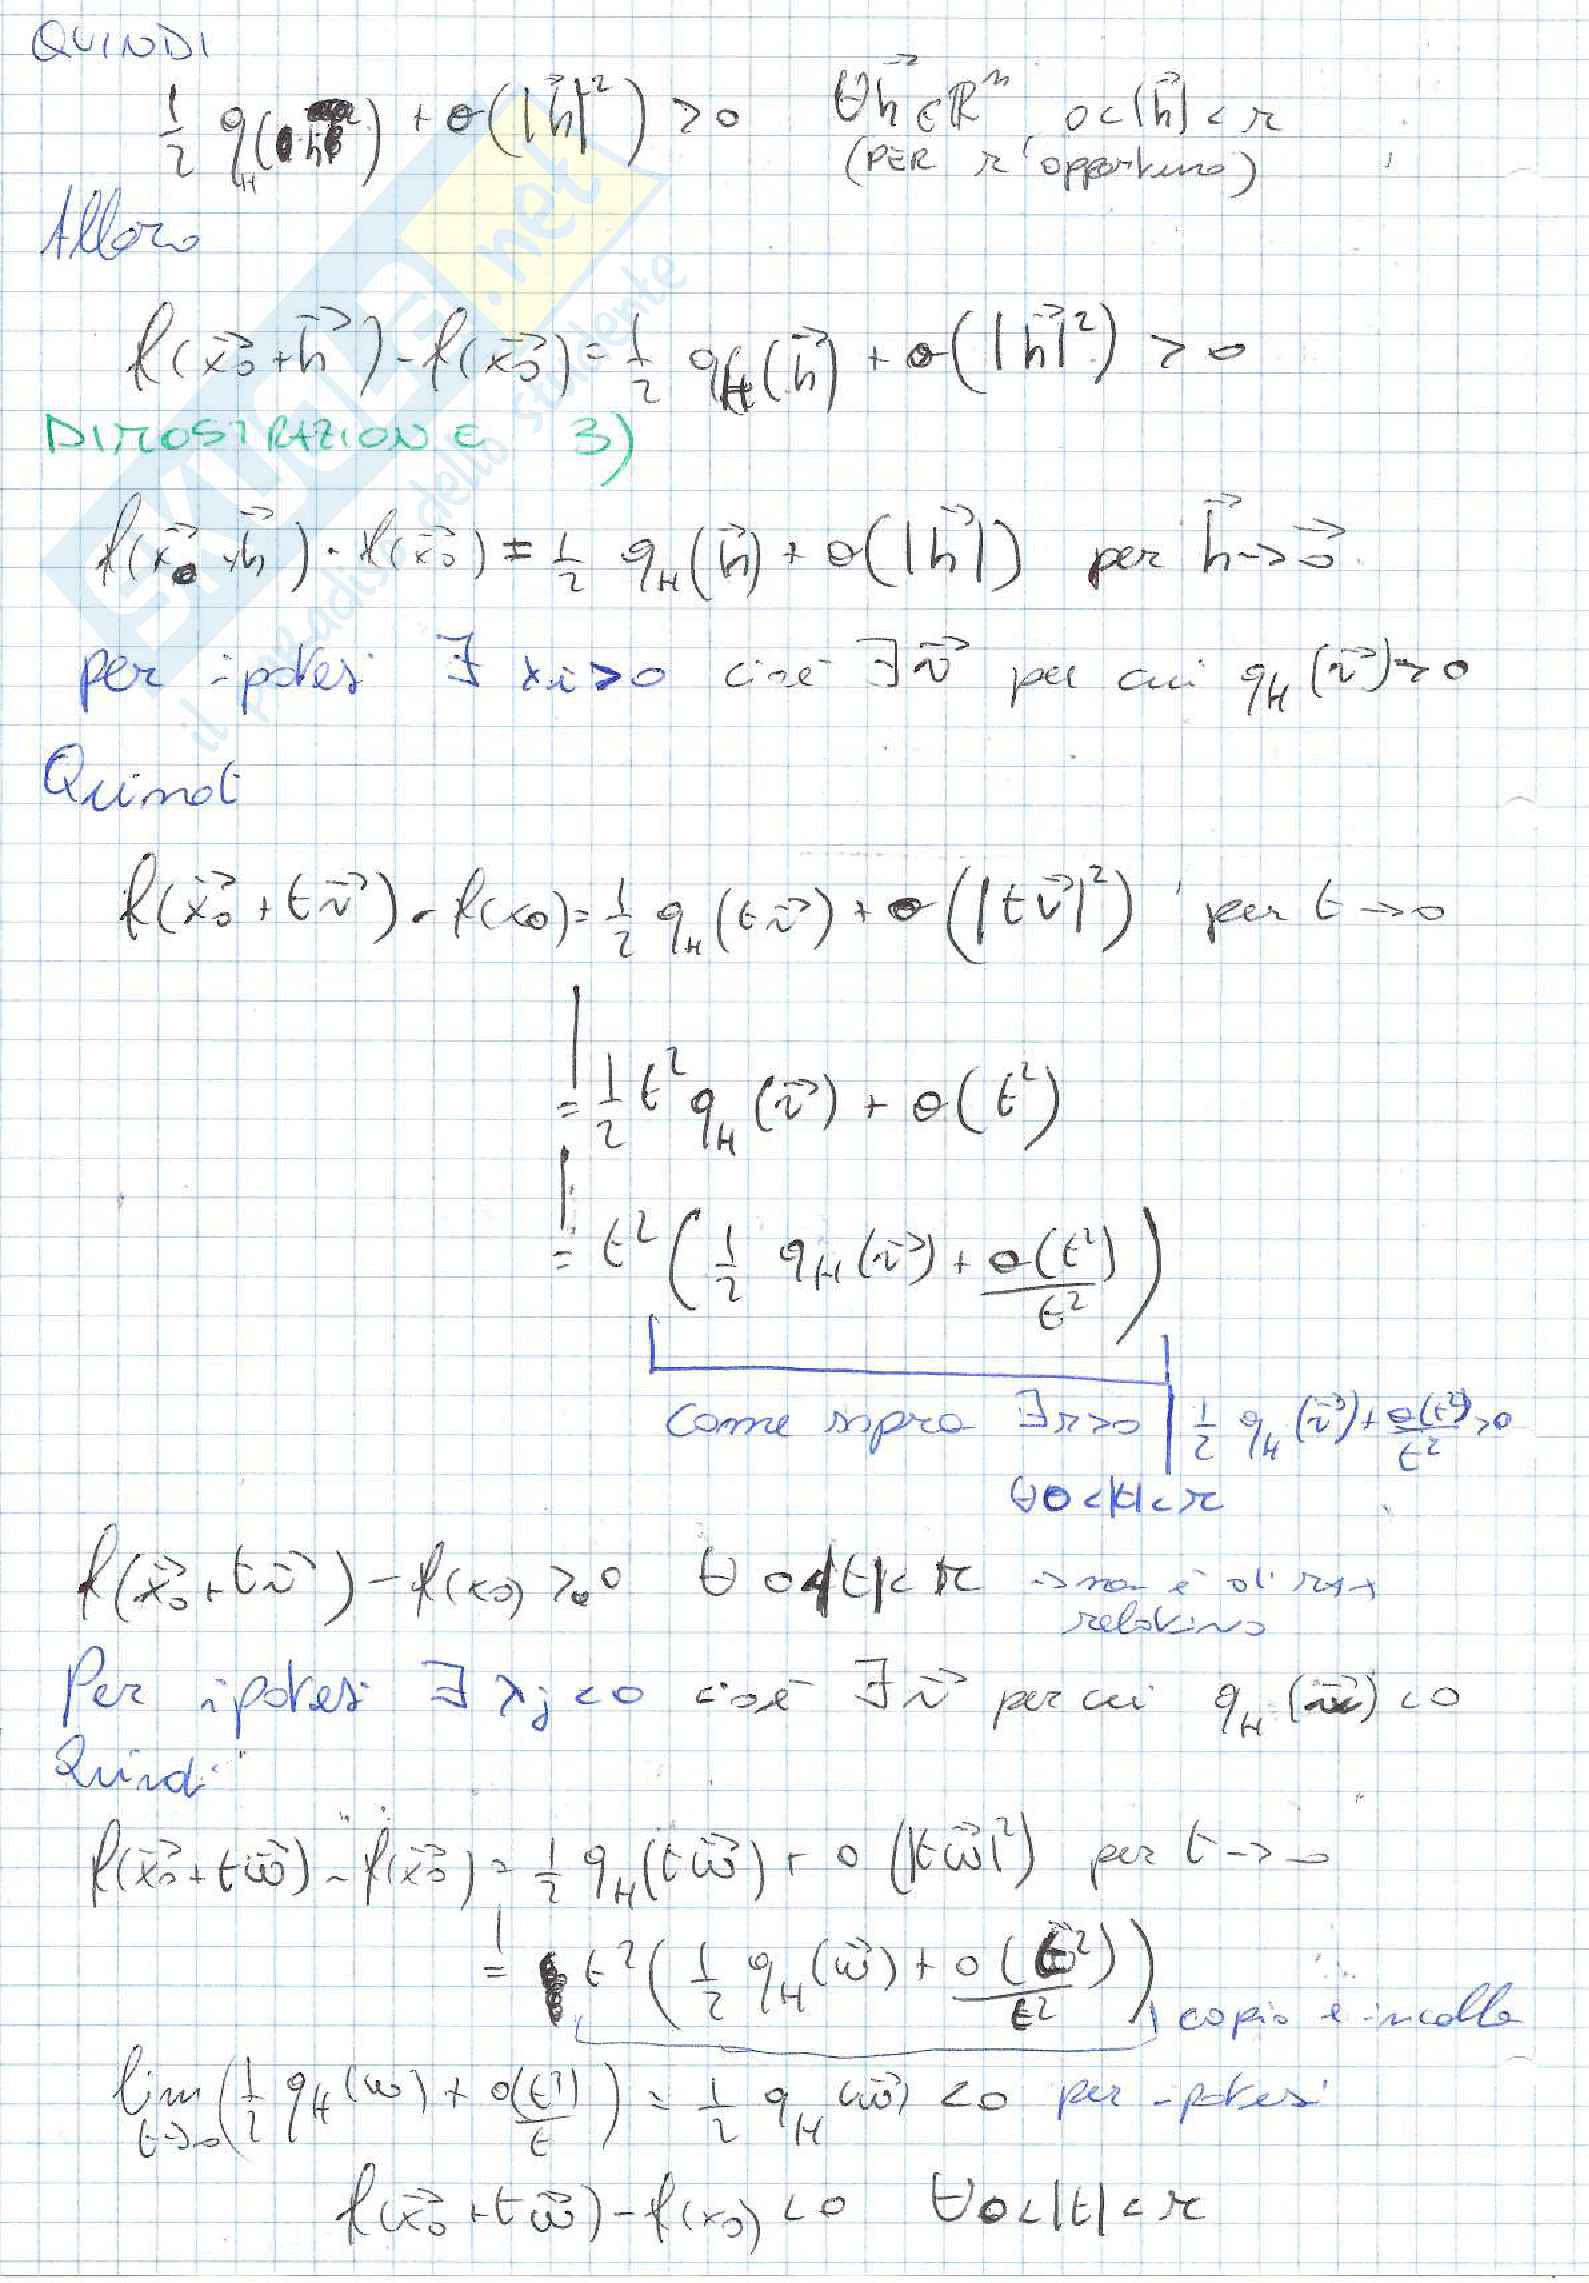 QUINDI
1/2 q_H(h⃗) + o(|h⃗|²) > 0 ∀h⃗ ∈ ℝⁿ 0<|h⃗|<r
(PER r opportuno)
Allora
f(x⃗₀+h⃗) - f(x⃗₀) = 1/2 q_H(h⃗) + o(|h⃗|²) > 0
DIMOSTRAZIONE 3)
f(x⃗₀+h⃗) - f(x⃗₀) = 1/2 q_H(h⃗) + o(|h⃗|) per h⃗→0⃗
per ipotesi ∃ λi>0 cioè ∃v⃗ per cui q_H(v⃗)>0
Quindi
f(x⃗₀+tv⃗) - f(x₀) = 1/2 q_H(tv⃗) + o(|tv⃗|²) per t→0
= 1/2 t² q_H(v⃗) + o(t²)
= t²(1/2 q_H(v⃗) + o(t²)/t²)
Come sopra ∃r>0 | 1/2 q_H(v⃗) + o(t²)/t² >0
∀0<|t|<r
f(x⃗₀+tv⃗) - f(x₀) >0 ∀ 0<|t|<r → non è di max
relativo
Per ipotesi ∃ λj<0 cioè ∃ w⃗ per cui q_H(w⃗)<0
Quindi
f(x⃗₀+tw⃗) - f(x⃗₀) = 1/2 q_H(tw⃗) + o(|tw⃗|²) per t→0
= t²(1/2 q_H(w⃗) + o(t²)/t²) copia e incolla
lim t→0 (1/2 q_H(w) + o(t²)/t) = 1/2 q_H(w⃗) <0 per ipotesi
f(x⃗₀+tw⃗) - f(x₀) <0 ∀0<|t|<r
SKUOLA.net
il paradiso dello studente